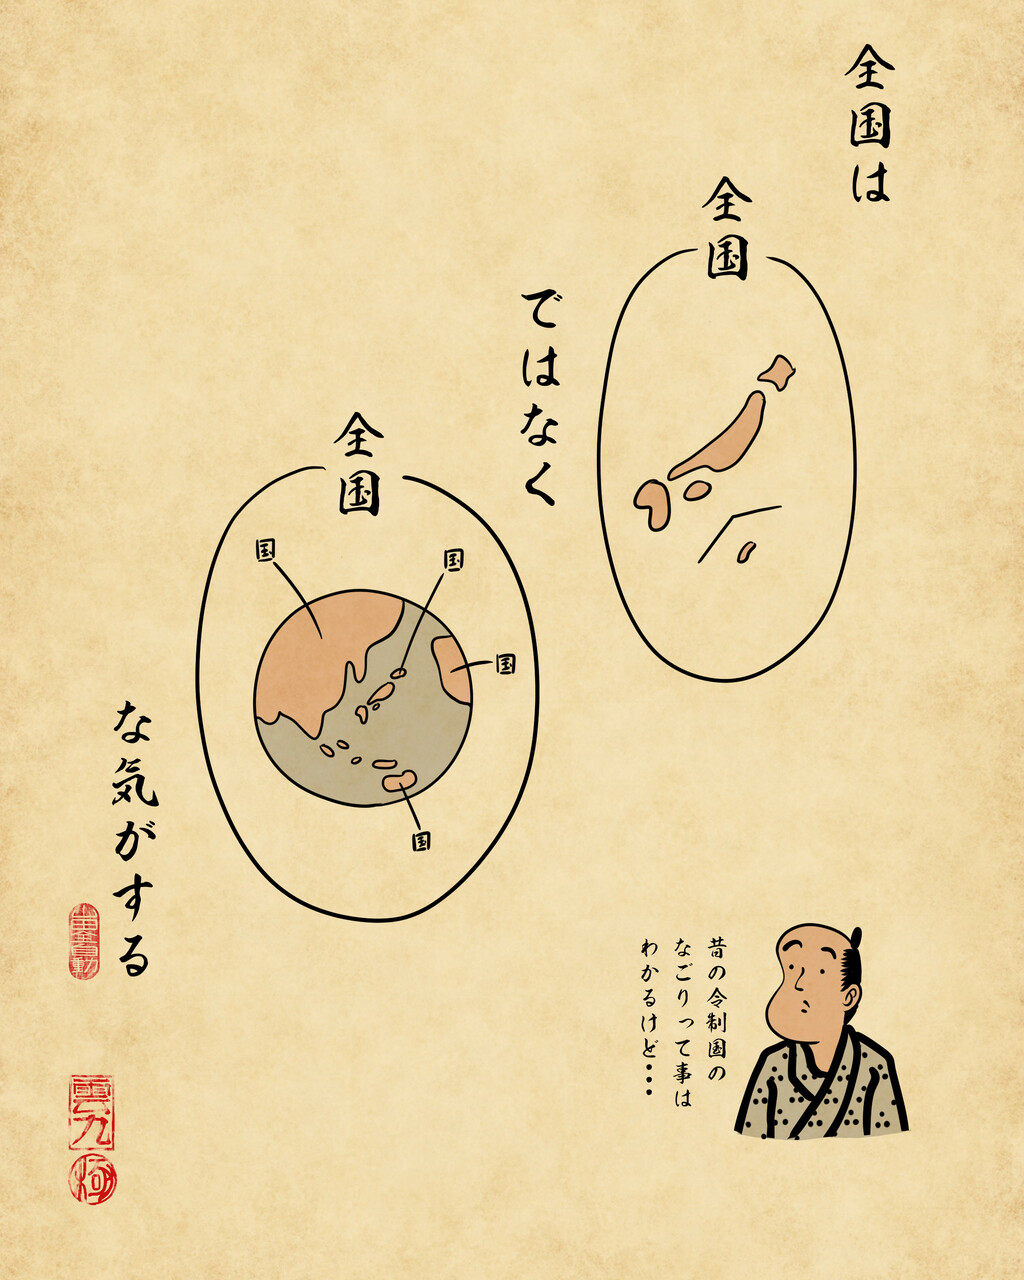 全国は
全国
ではなく
全国
国
国
国
国
な気がする
昔の令制国の
なごりって事は
わかるけど・・・